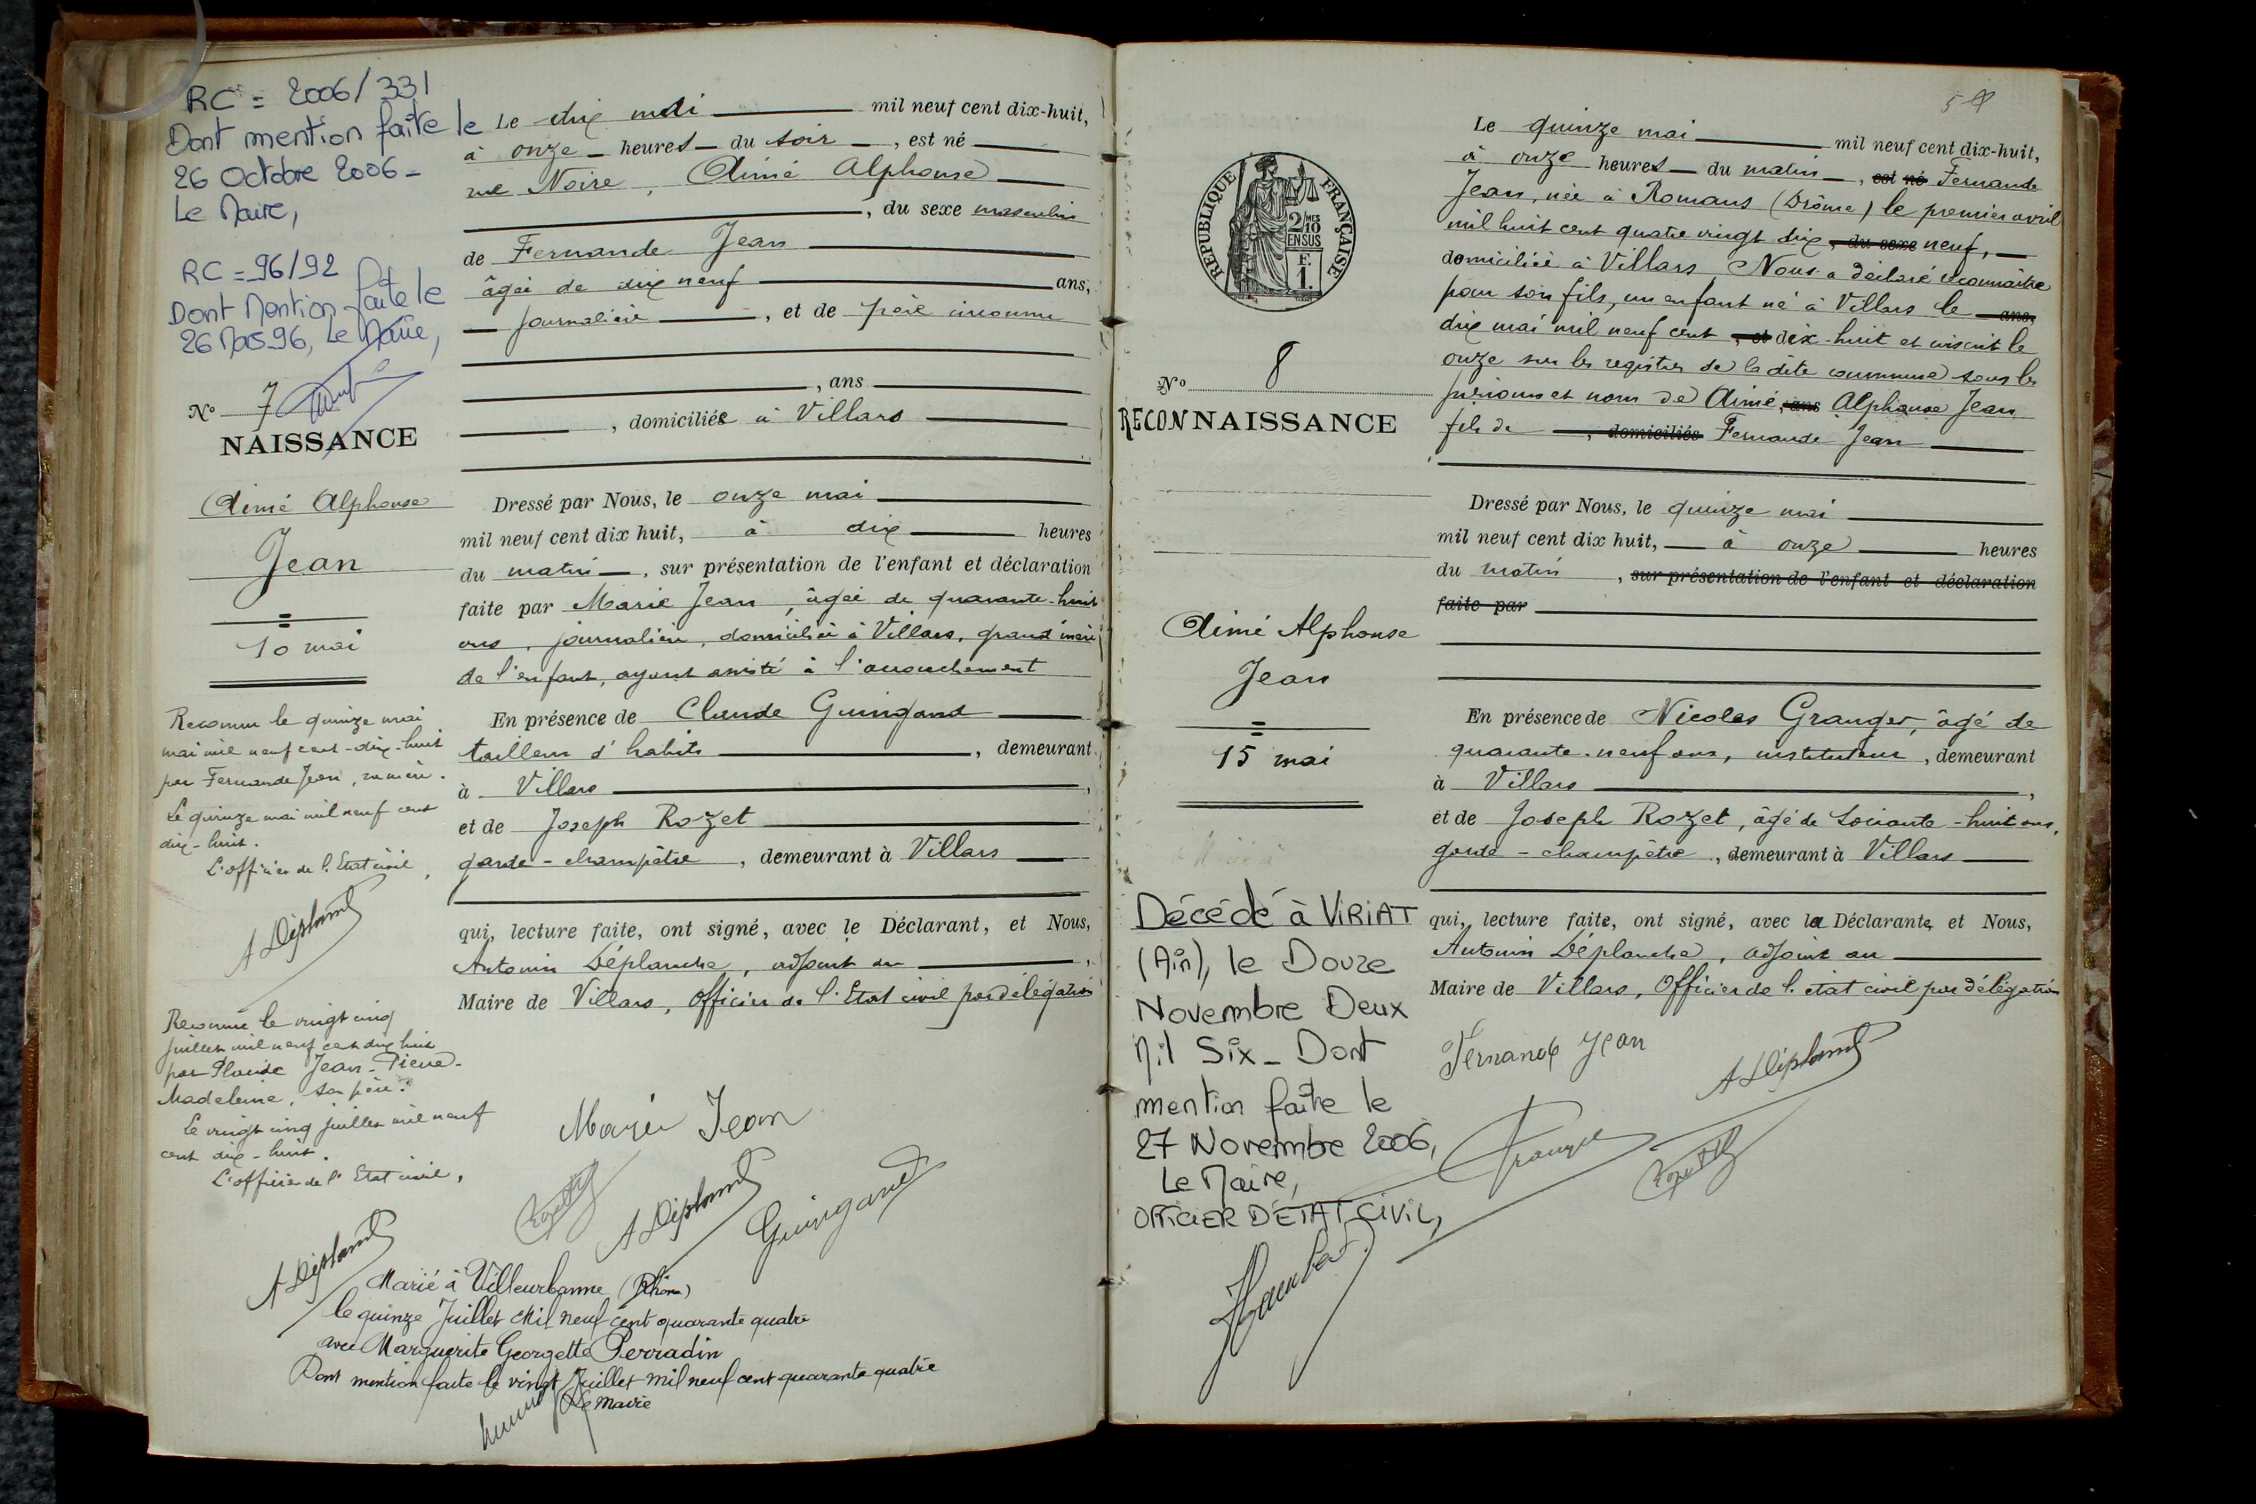 RC = 2006/331
Dont mention faite le
26 Octobre 2006 -
Le Maire,
RC = 96/92
Dont Mention faite le
26 Mars 96, Le Maire,
N° 7
NAISSANCE
Aimé Alphonse
Jean
10 mai
Reconnu le quinze mai
mai mil neuf cent - dix - huit
par Fernande Jean, sa mère.
Le quinze mai mil neuf cent
dix - huit.
L'officier de l'Etat civil,
A Déplanche
Reconnu le vingt cinq
juillet mil neuf cent dix huit
par Claude Jean - Pierre -
Madeleine, son père.
Le vingt cinq juillet mil neuf
cent dix - huit.
L'officier de l'Etat civil,
A Déplanche
Le dix mai mil neuf cent dix-huit,
à onze heures du soir, est né
rue Noire, Aimé Alphonse
, du sexe masculin
de Fernande Jean
âgée de dix neuf ans,
journalière, et de père inconnu
, ans
, domiciliée à Villars
Dressé par Nous, le onze mai
mil neuf cent dix huit, à dix heures
du matin, sur présentation de l'enfant et déclaration
faite par Marie Jean, âgée de quarante-huit
ans, journalière, domiciliée à Villars, grand'mère
de l'enfant, ayant assisté à l'accouchement
En présence de Claude Guingand
tailleur d'habits, demeurant
à Villars,
et de Joseph Rozet
garde-champêtre, demeurant à Villars
qui, lecture faite, ont signé, avec le Déclarant, et Nous,
Antonin Déplanche, adjoint au,
Maire de Villars, Officier de l'Etat civil par délégation
Marie Jean
Rozet
A Déplanche
Guingand
Marié à Villeurbanne (Rhône)
le quinze Juillet Mil neuf cent quarante quatre
avec Marguerite Georgette Perradin
Dont mention faite le vingt Juillet mil neuf cent quarante quatre
Le Maire
RÉPUBLIQUE FRANÇAISE
2/10 MES
EN SUS
F.
1.
N° 8
RECONNAISSANCE
Aimé Alphonse
Jean
15 mai
Décédé à VIRIAT
(Ain), le Douze
Novembre Deux
Mil Six - Dont
mention faite le
27 Novembre 2006,
Le Maire,
OFFICIER D'ÉTAT CIVIL,
Le quinze mai mil neuf cent dix-huit,
à onze heures du matin, est né Fernande
Jean, née à Romans (Drôme) le premier avril
mil huit cent quatre vingt dix, du sexe neuf,
domiciliée à Villars, Nous a déclaré reconnaître
pour son fils, un enfant né à Villars le ans,
dix mai mil neuf cent, et dix-huit et inscrit le
onze sur les registres de la dite commune sous les
prénoms et nom de Aimé, ans Alphonse Jean
fils de, domiciliés Fernande Jean
Dressé par Nous, le quinze mai
mil neuf cent dix huit, à onze heures
du matin, sur présentation de l'enfant et déclaration
faite par
En présence de Nicolas Granger, âgé de
quarante-neuf ans, instituteur, demeurant
à Villars,
et de Joseph Rozet, âgé de soixante-huit ans,
garde-champêtre, demeurant à Villars
qui, lecture faite, ont signé, avec la Déclarante, et Nous,
Antonin Déplanche, adjoint au
Maire de Villars, Officier de l'état civil par délégation
Fernande Jean
A Déplanche
Granger
Rozet